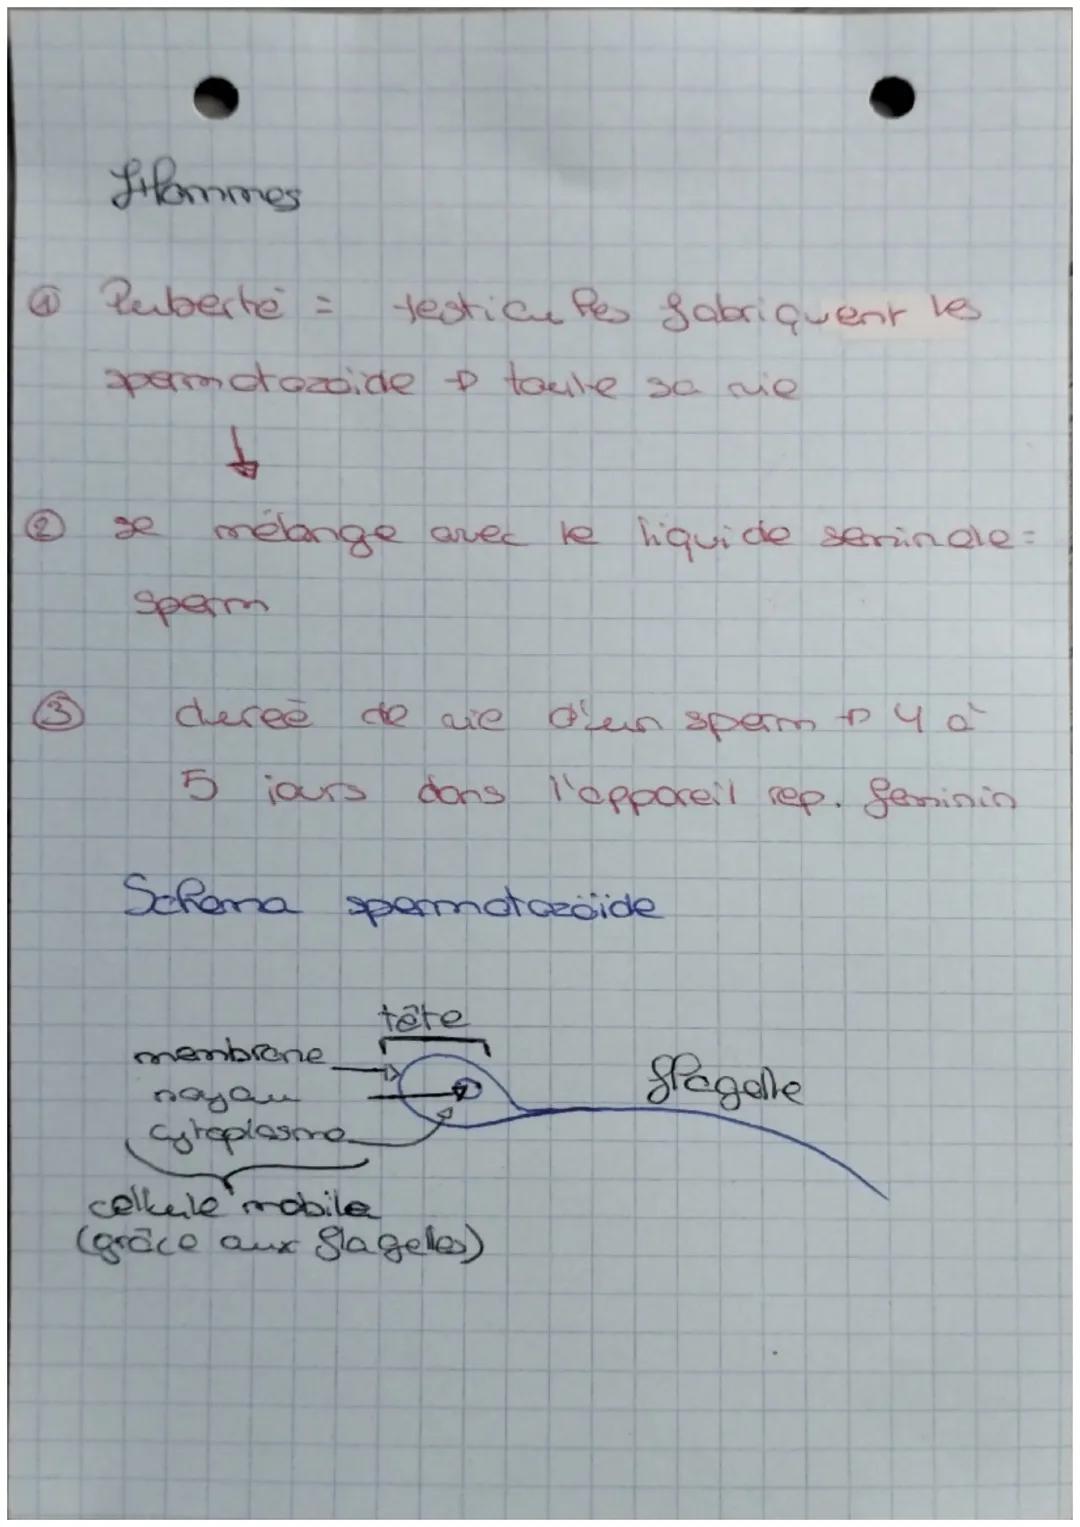 Hommes
① Puberté = testicules fabriquent les
spermatozoide → toute sa vie
↓
② se mélange avec le liquide seminale =
sperm
③ dureé de vie d'un sperm → 4 à
5 jours dans l'appareil rep. feminin
Schema spermatozoïde
tête
membrane
flagelle
noyau
cytoplasme
cellule mobile
(grâce aux flagelles)